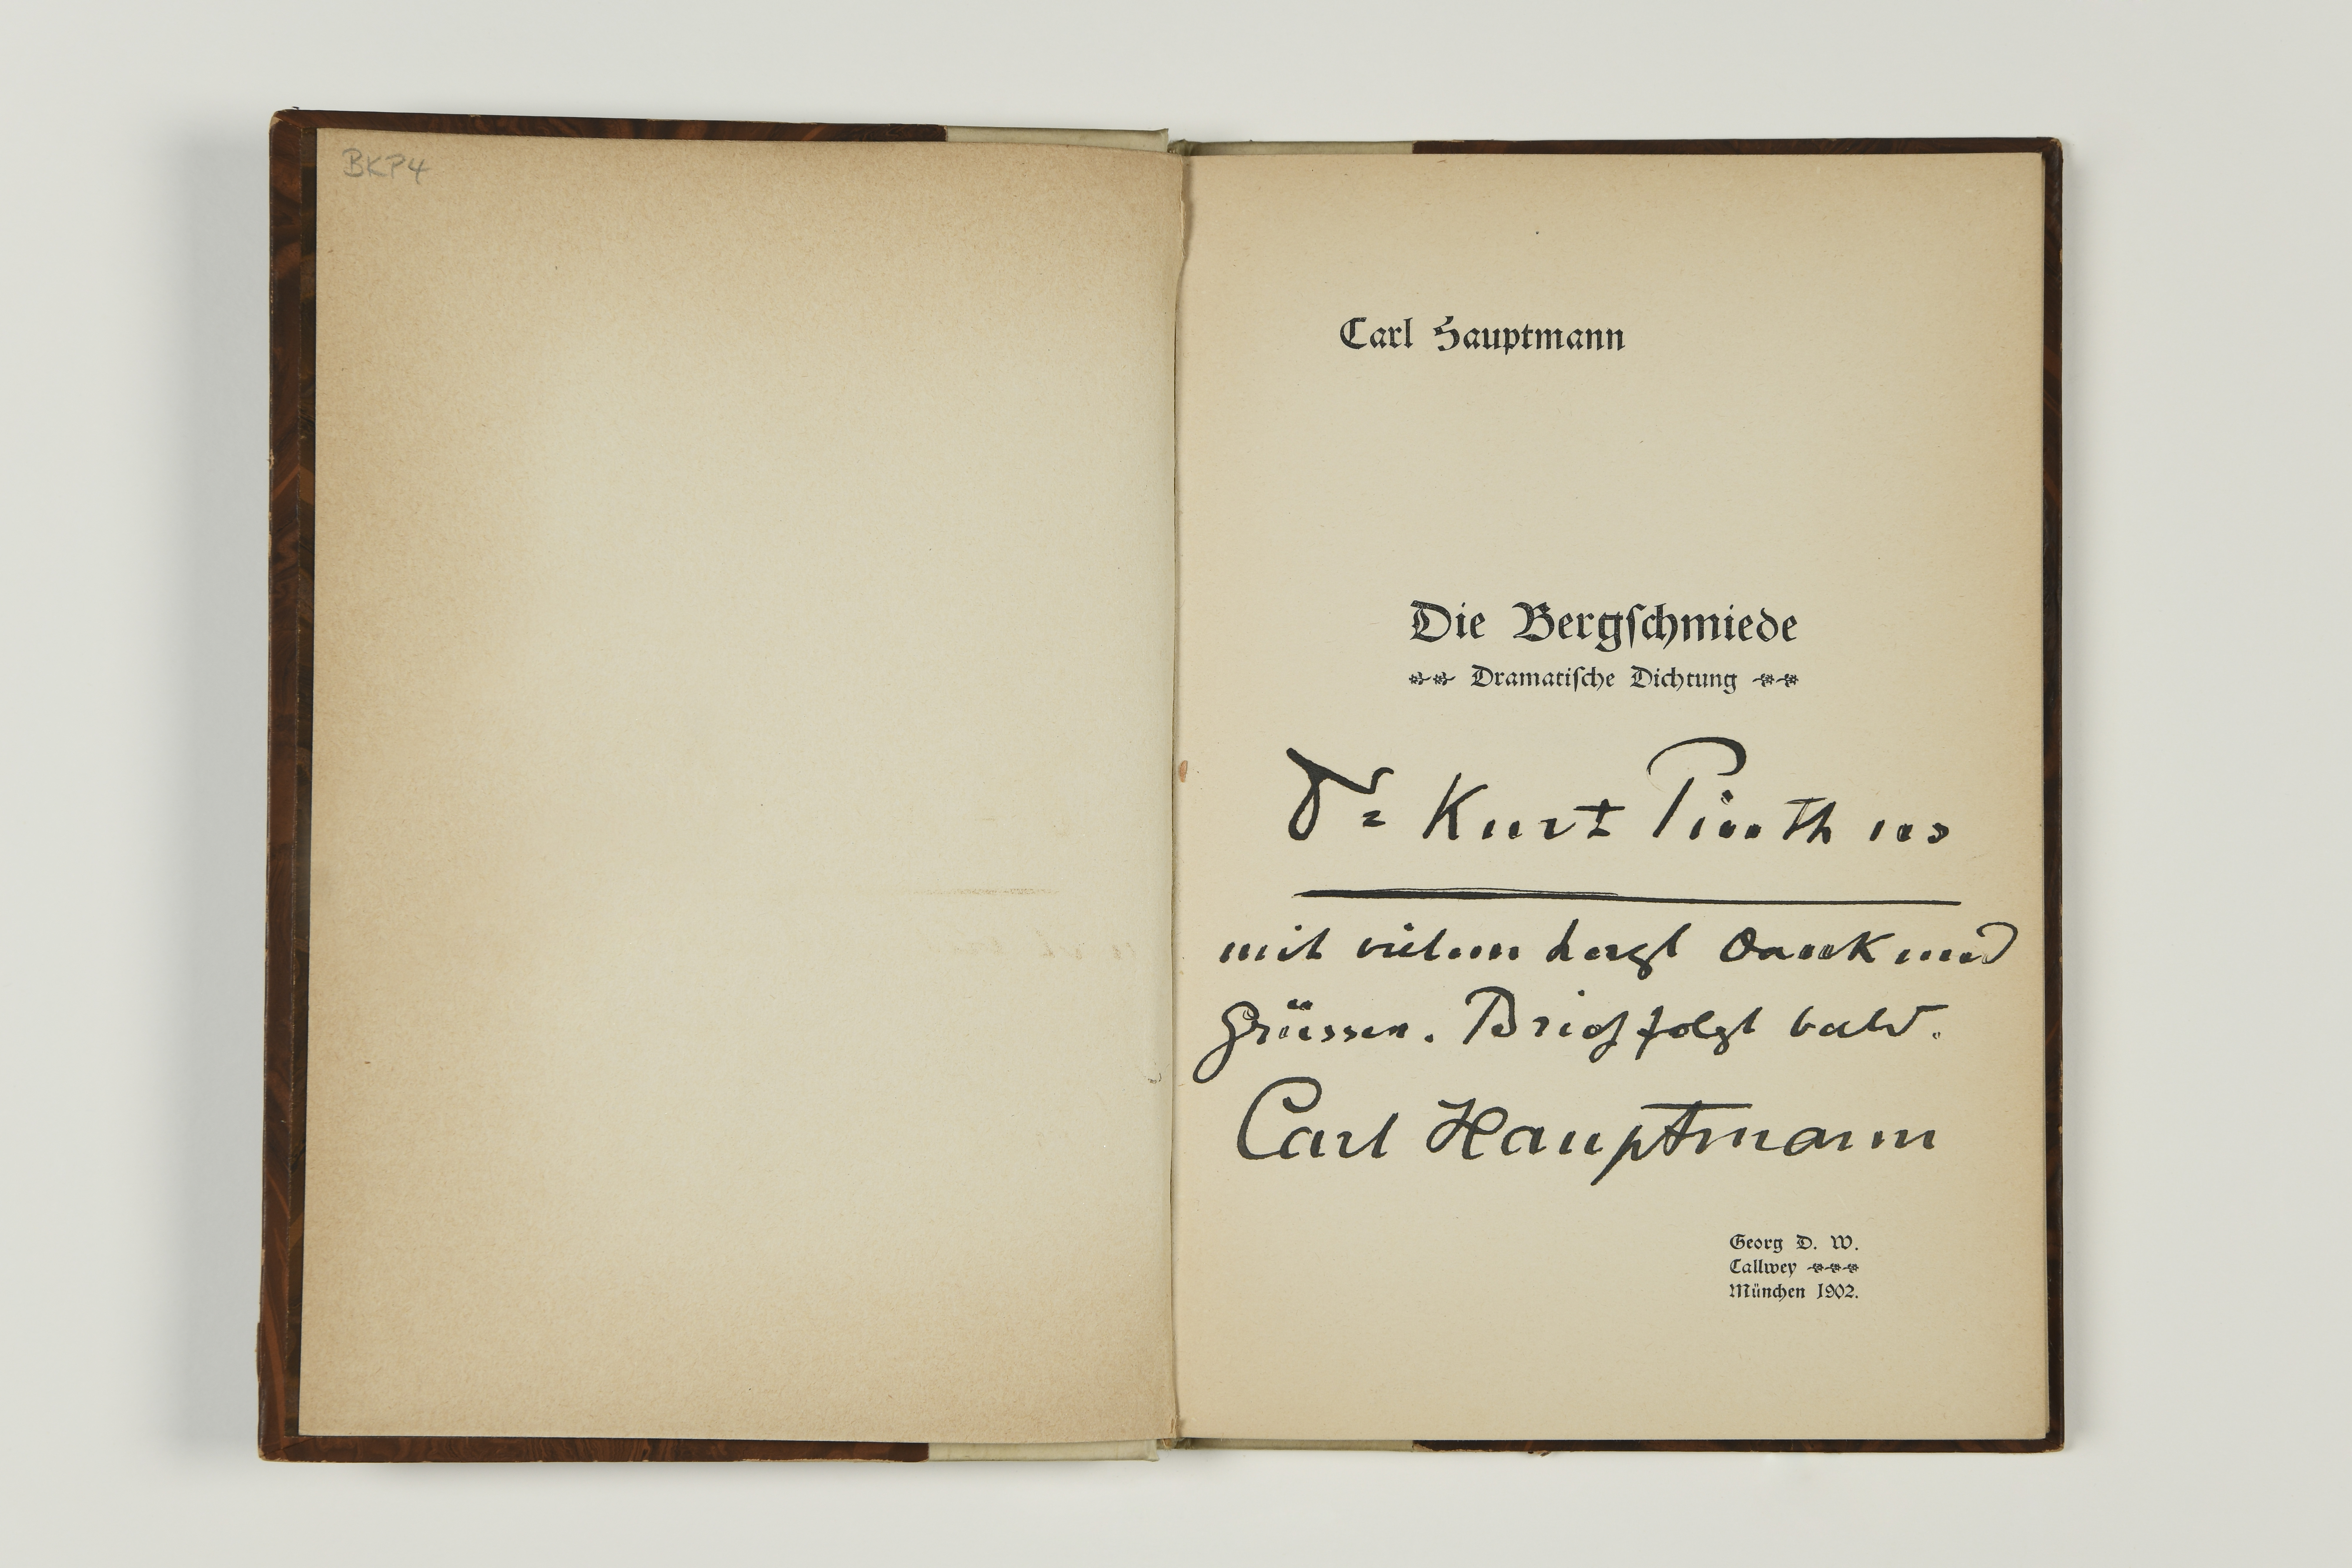 BKP4
Carl Hauptmann
Die Bergſchmiede
Dramatiſche Dichtung
Dr = Kurt Pinthus
mit vielem herzl Dank und
Grüssen. Brief folgt bald.
Carl Hauptmann
Georg D. W.
Callwey
München 1902.